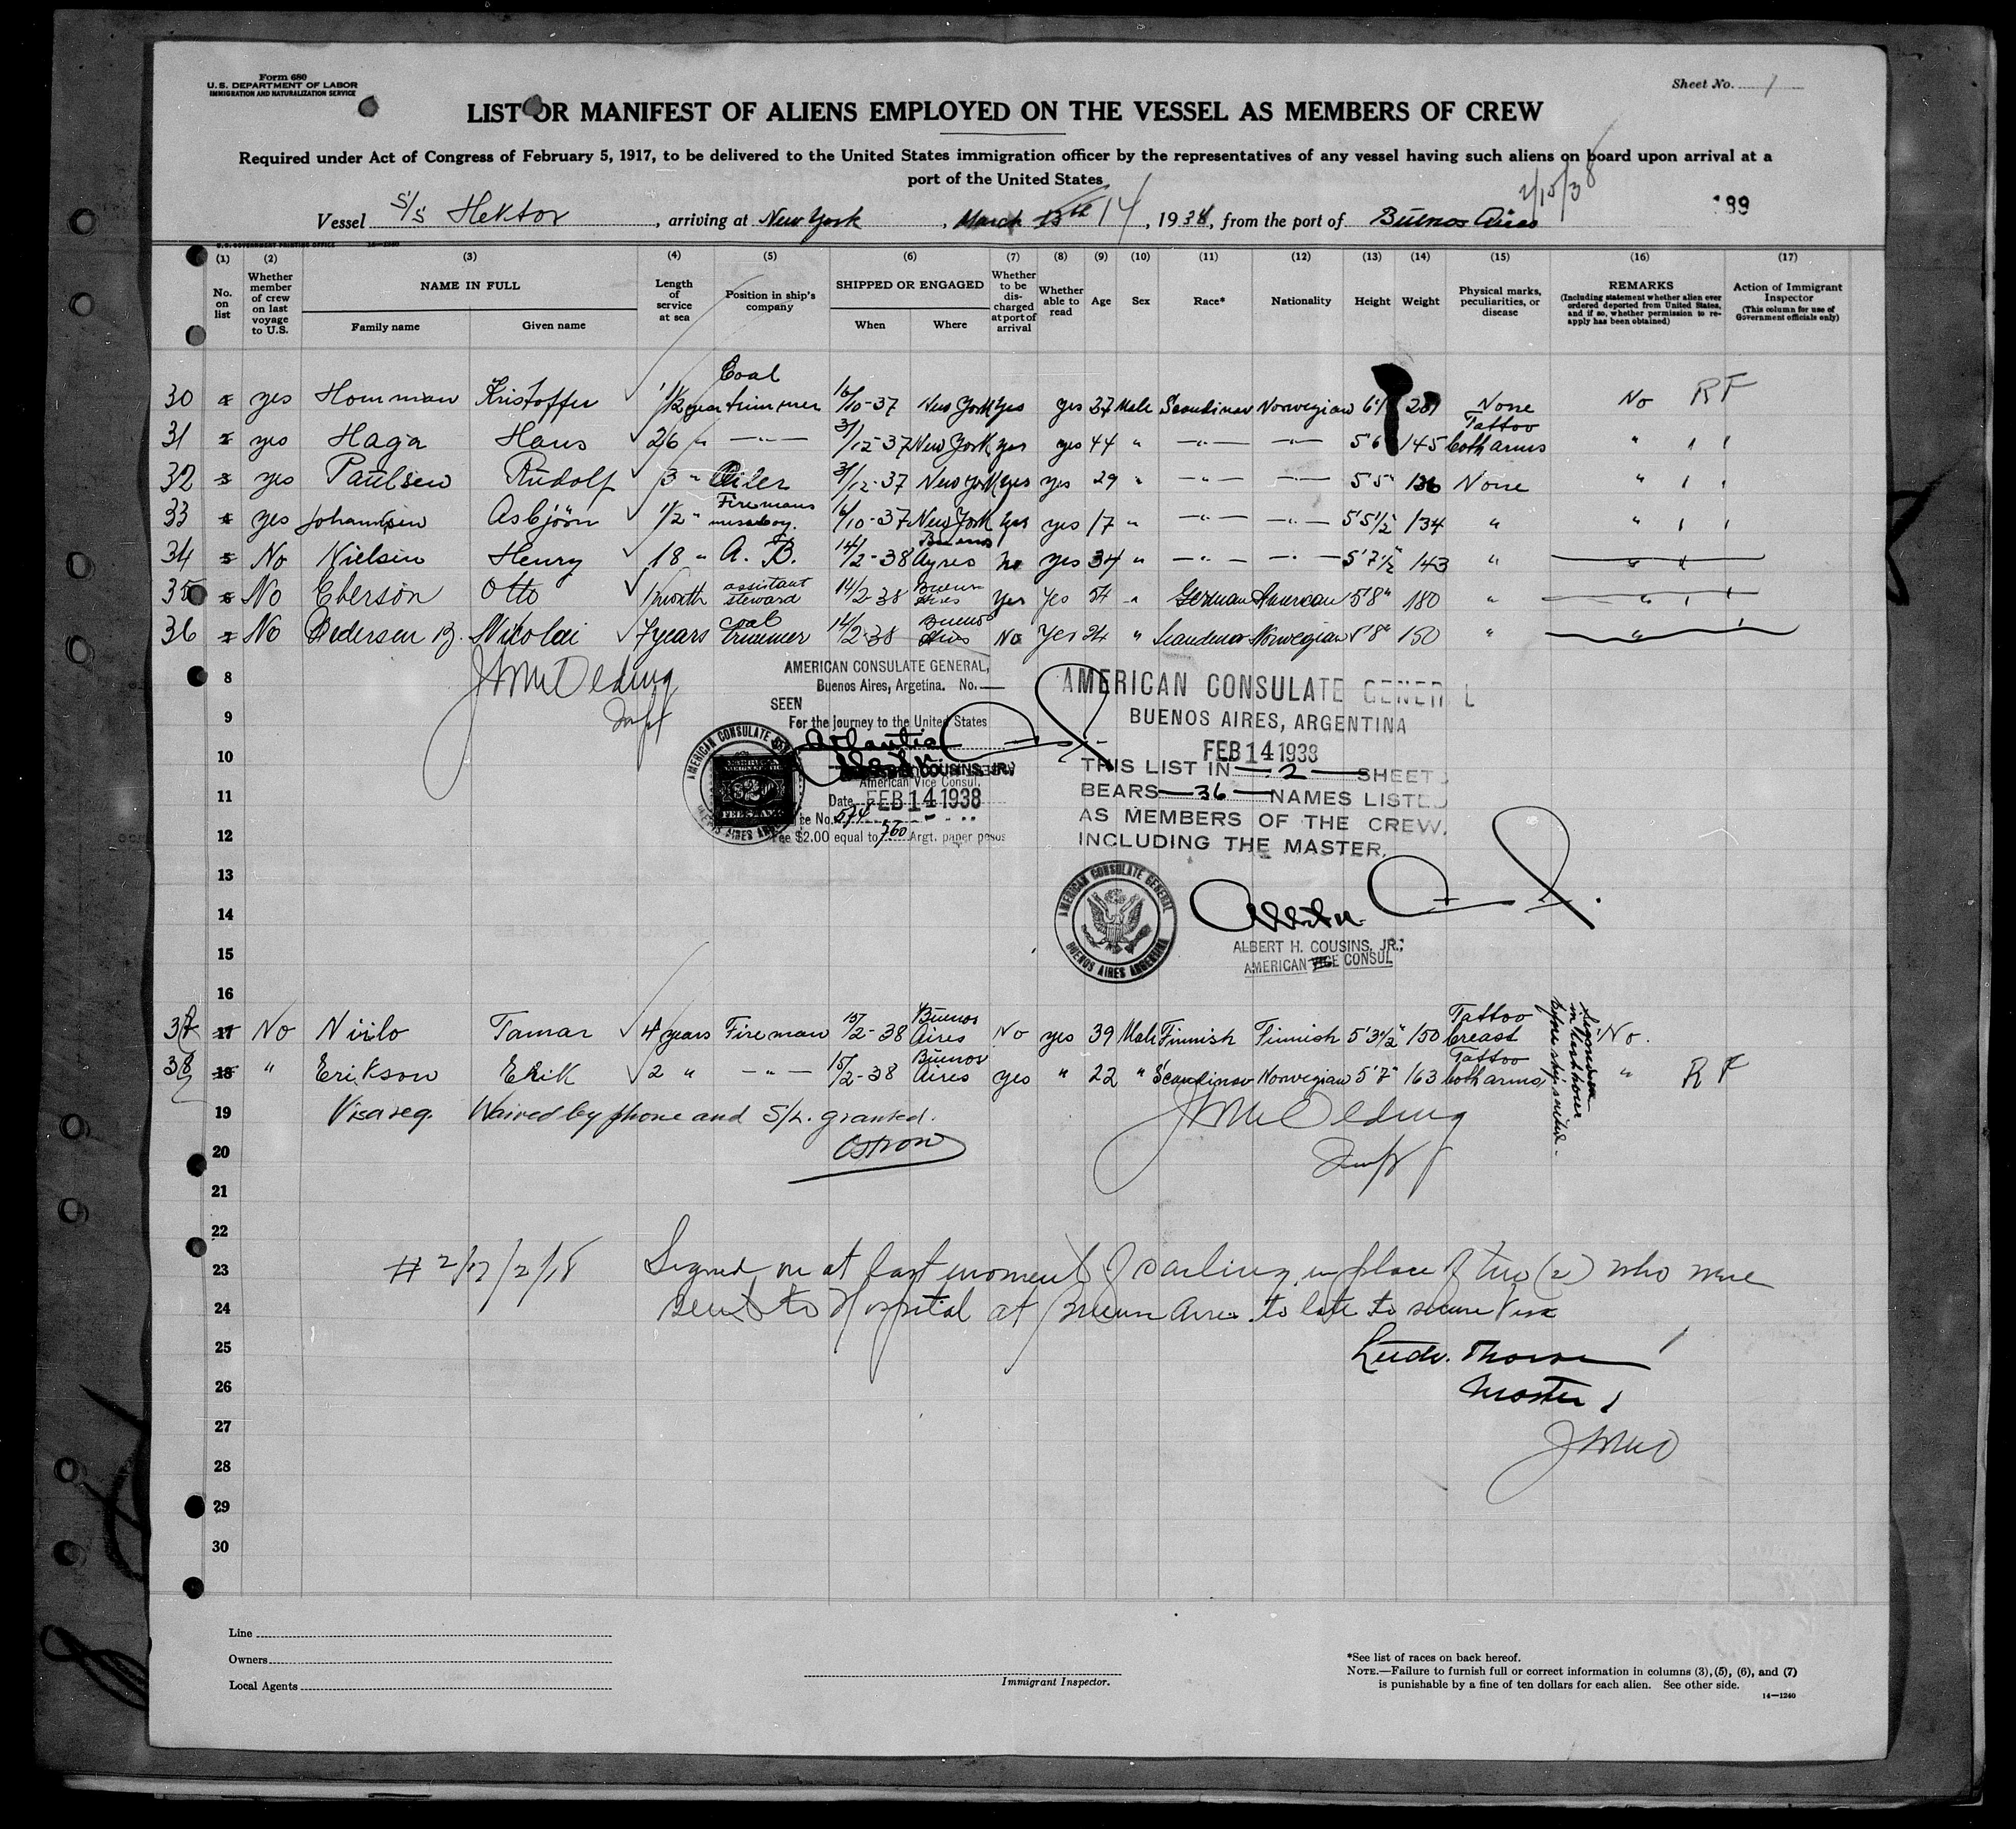 Form 680
U. S. DEPARTMENT OF LABOR
IMMIGRATION AND NATURALIZATION SERVICE
Sheet No. 1
LIST OR MANIFEST OF ALIENS EMPLOYED ON THE VESSEL AS MEMBERS OF CREW
Required under Act of Congress of February 5, 1917, to be delivered to the United States immigration officer by the representatives of any vessel having such aliens on board upon arrival at a
port of the United States
2/15/38
Vessel S/S Hektor, arriving at New York, March 13th 14, 1938, from the port of Buenos Aires
199
U. S. GOVERNMENT PRINTING OFFICE 14—1240
(1) (2) (3) (4) (5) (6) (7) (8) (9) (10) (11) (12) (13) (14) (15) (16) (17)
No. on list
Whether member of crew on last voyage to U.S.
NAME IN FULL
Family name
Given name
Length of service at sea
Position in ship's company
SHIPPED OR ENGAGED
When
Where
Whether to be discharged at port of arrival
Whether able to read
Age
Sex
Race*
Nationality
Height
Weight
Physical marks, peculiarities, or disease
REMARKS
(Including statement whether alien ever ordered deported from United States, and if so, whether permission to reapply has been obtained)
Action of Immigrant Inspector
(This column for use of Government officials only)
30 1 yes Homman Kristoffer 1 1/2 year Coal trimmer 16/10-37 New York yes yes 27 Male Scandinav Norwegian 6'1 201 None No RF
31 2 yes Haga Hans 26 " —"— 31/12-37 New York yes yes 44 " —"— —"— 5'6 145 Tattoo both arms "
32 3 yes Paulsen Rudolf 3 " Oiler 31/12-37 New York yes yes 29 " —"— —"— 5'5" 136 None "
33 4 yes Johansen Asbjörn 1/2 " Firemans messboy. 16/10-37 New York yes yes 17 " —"— —"— 5'5 1/2" 134 " "
34 5 No Nielsen Henry 18 " A. B. 14/2-38 Buenos Ayres No yes 34 " —"— —"— 5'7 1/2" 143 " "
35 6 No Eberson Otto 1 month assistant steward 14/2-38 Buenos Aires yes yes 54 " German American 5'8" 180 " "
36 7 No Pedersen B. Nikolai 7 years coal trimmer 14/2-38 Buenos Aires No yes 24 " Scandinav Norwegian 5'8" 150 " "
8
9
10
11
12
13
14
15
16
AMERICAN CONSULATE GENERAL,
Buenos Aires, Argetina. No.—
SEEN
For the journey to the United States
Atlantic
COUSINS, JR.
American Vice Consul.
Date FEB 14 1938
No. 574
Fee $2.00 equal to 7.60 Argt. paper pesos
AMERICAN CONSULATE GENERAL
BUENOS AIRES ARGENTINA
AMERICAN CONSULATE GENERAL
BUENOS AIRES, ARGENTINA
FEB 14 1938
THIS LIST IN —2— SHEETS
BEARS —36— NAMES LISTED
AS MEMBERS OF THE CREW,
INCLUDING THE MASTER.
AMERICAN CONSULATE GENERAL
BUENOS AIRES ARGENTINA
ALBERT H. COUSINS, JR.
AMERICAN VICE CONSUL
37 17 No Tamar 4 years Fireman 15/2-38 Buenos Aires No yes 39 Male Finnish Finnish 5'3 1/2" 150 Tattoo breast No.
38 18 " Erikson Erik 2 " —"— 15/2-38 Buenos Aires yes " 22 " Scandinav Norwegian 5'7" 163 Tattoo both arms " RF
before ship sailed.
19 Visa req. Waived by phone and S/L. granted.
20 Ostrow
21
22
23 Signed on at last moment of sailing in place of two (2) who were
24 sent to Hospital at Buenos Aires to late to secure Visa
25
26 Master
27
28
29
30
Line
Owners
Local Agents
Immigrant Inspector.
*See list of races on back hereof.
NOTE.—Failure to furnish full or correct information in columns (3), (5), (6), and (7)
is punishable by a fine of ten dollars for each alien. See other side.
14—1240